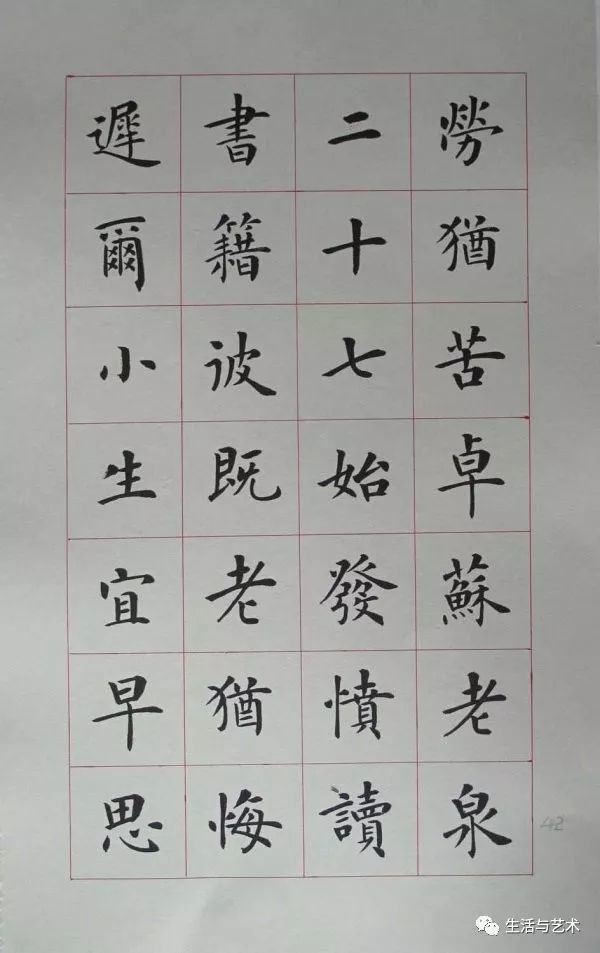 勞猶苦卓蘇老泉
二十七始發憤讀
書籍彼既老猶悔
遲爾小生宜早思
42
生活与艺术